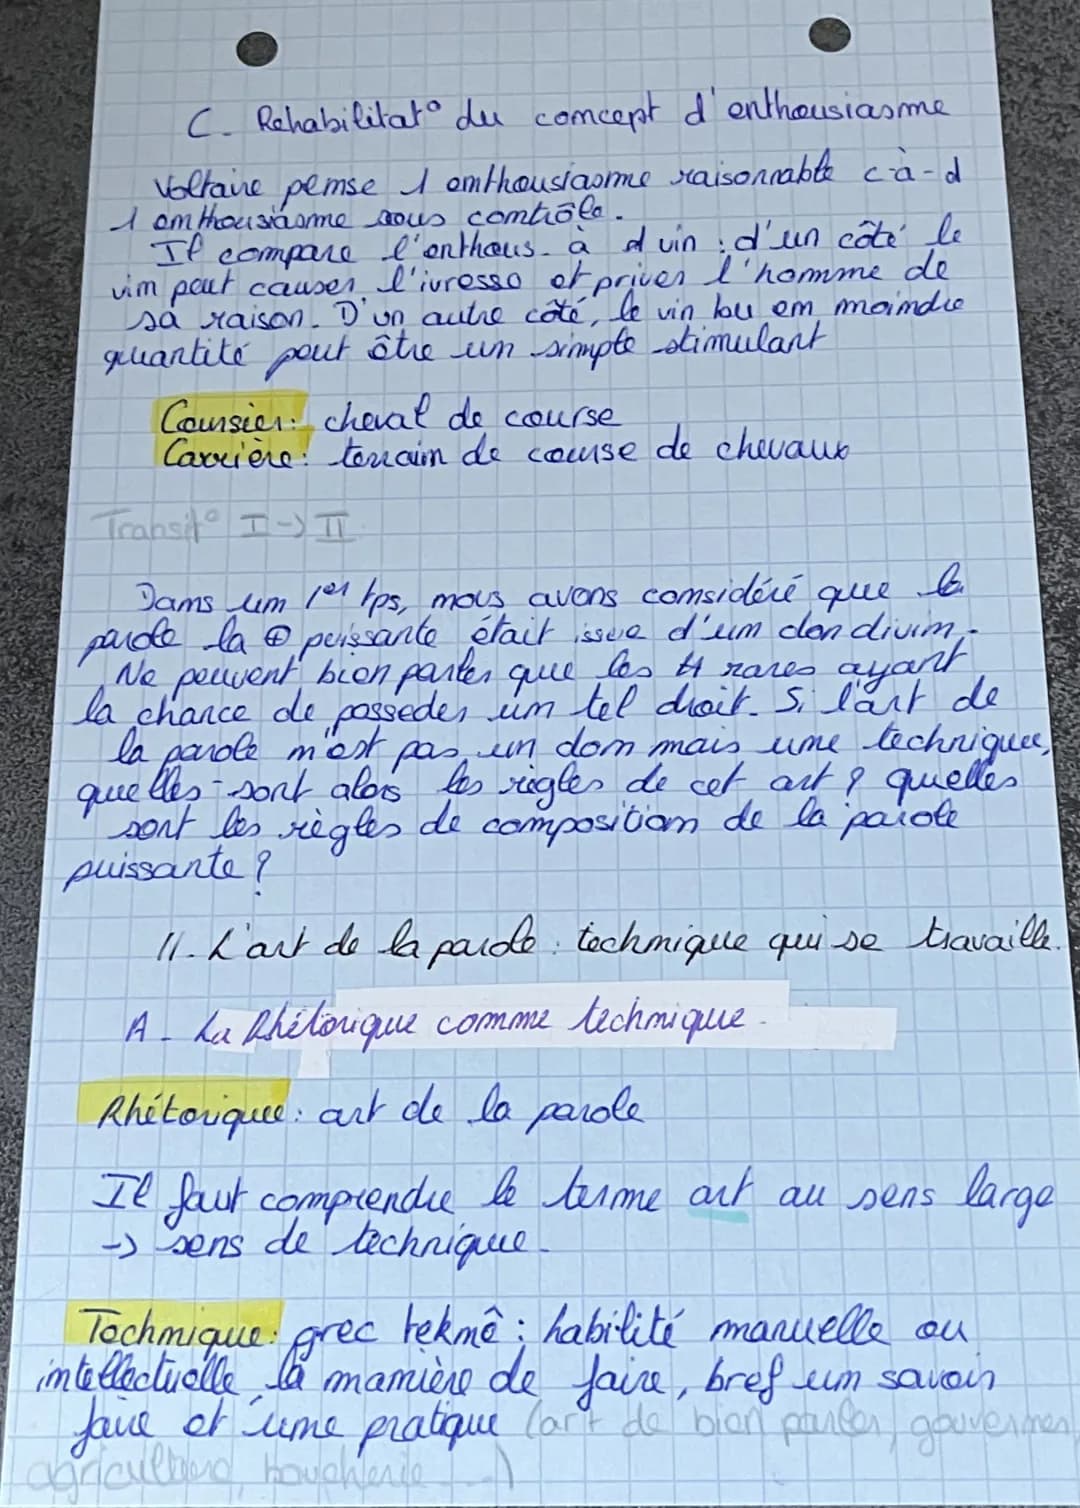 C. Rehabilitat° du concept d'enthousiasme
Voltaire pense 1 enthousiasme raisonnable c-à-d
1 enthousiasme sous contrôle.
Il compare l'enthous. à d vin : d'un côté le
vin peut causer l'ivresse et priver l'homme de
sa raison. D'un autre côté, le vin bu en moindre
quantité peut être un simple stimulant
Coursier: cheval de course
Carrière: terrain de course de chevaux
Transit° I -> II
Dans un 1er tps, nous avons considéré que la
parole la ⊕ puissante était issue d'un don divin.
Ne peuvent bien parler que les rares ayant
la chance de posseder un tel droit. Si l'art de
la parole n'est pas un don mais une technique,
quelles-sont alors les règles de cet art ? quelles
sont les règles de composition de la parole
puissante ?
II. L'art de la parole : technique qui se travaille.
A - La Rhétorique comme technique.
Rhétorique: art de la parole
Il faut comprendre le terme art au sens large
-> sens de technique.
Technique: grec tekmê : habilité manuelle ou
intellectuelle, la manière de faire, bref un savoir
faire et une pratique (art de bien parler, gouverner,
agriculture, boucherie ...)